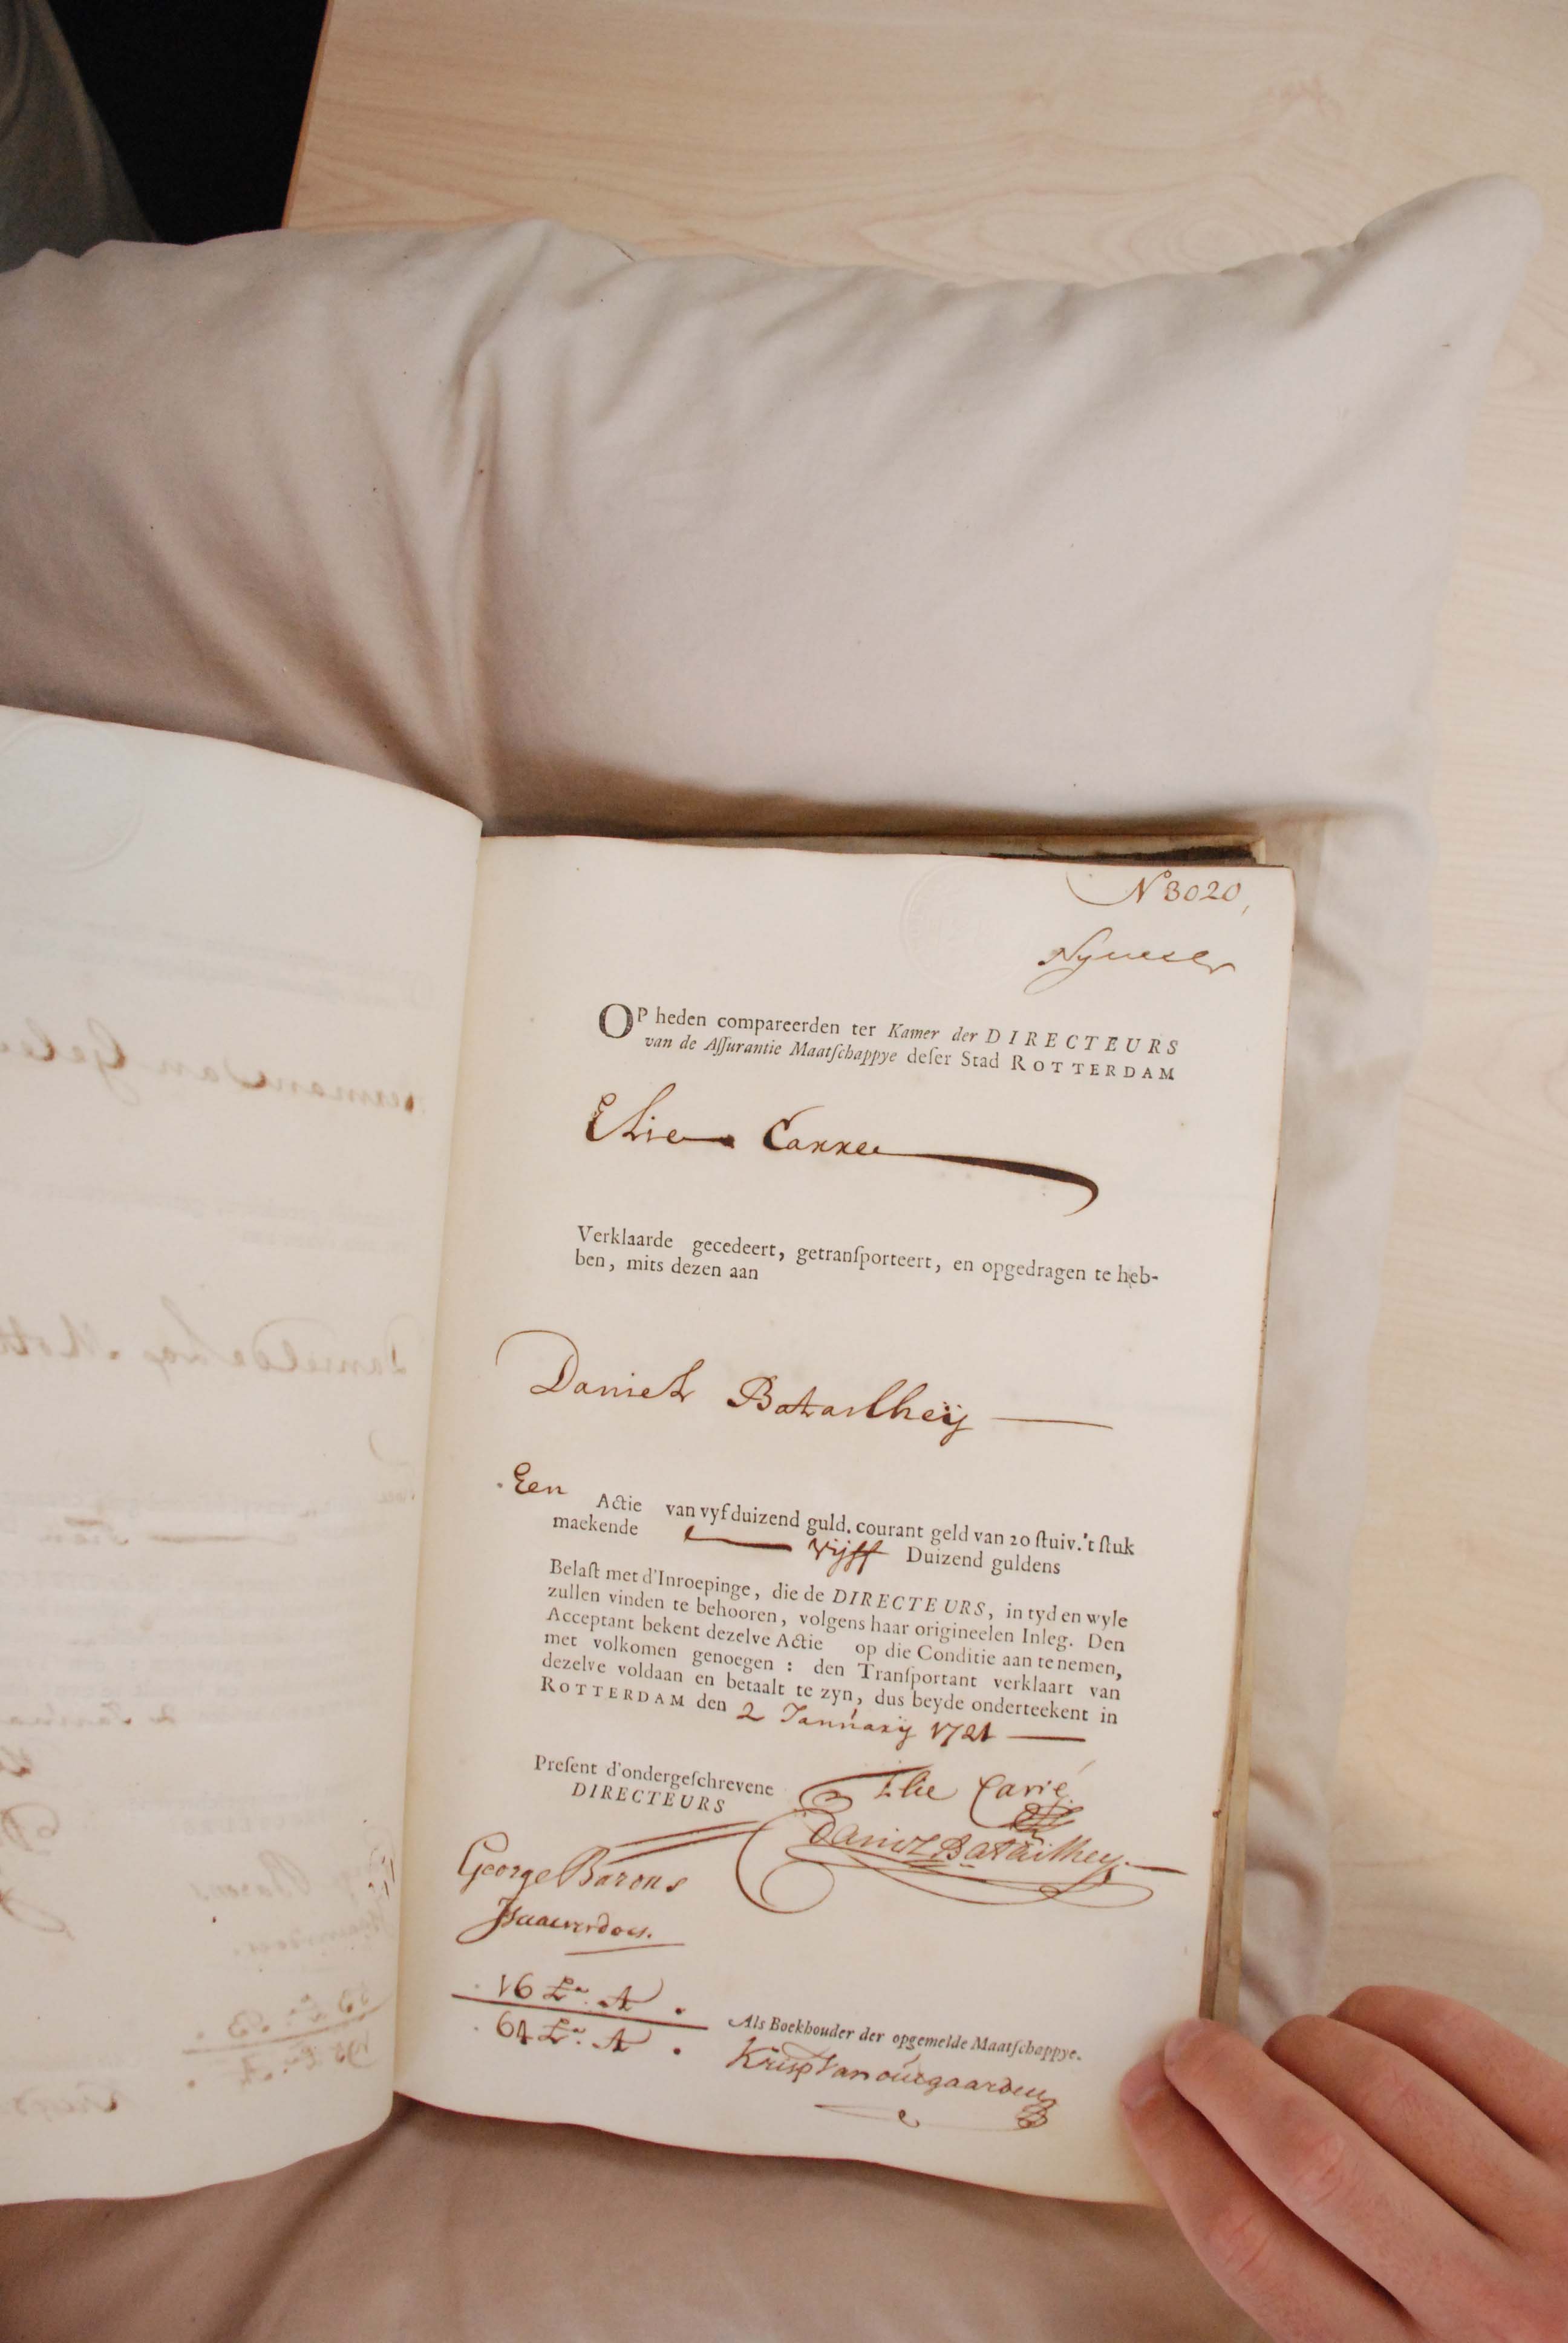 N 3020,
OP heden compareerden ter Kamer der DIRECTEURS
van de Assurantie Maatschappye deser Stad ROTTERDAM
Elie Carree
Verklaarde gecedeert, getransporteert, en opgedragen te heb-
ben, mits dezen aan
Daniel Batailheij
Een Actie van vyf duizend guld. courant geld van 20 stuiv. 't stuk
maekende vijff Duizend guldens
Belast met d'Inroepinge, die de DIRECTEURS, in tyd en wyle
zullen vinden te behooren, volgens haar origineelen Inleg. Den
Acceptant bekent dezelve Actie op die Conditie aan te nemen,
met volkomen genoegen : den Transportant verklaart van
dezelve voldaan en betaalt te zyn, dus beyde onderteekent in
ROTTERDAM den 2 Januarij 1721
Present d'ondergeschrevene
DIRECTEURS
Elie Carié
Daniel Batailhey
George Barons
16 Lr. A
64 Lr. A
Als Boekhouder der opgemelde Maatschappye.